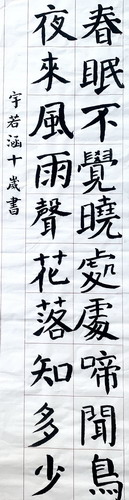 春眠不覺曉處處啼聞鳥
夜來風雨聲花落知多少
宇若涵十歲書